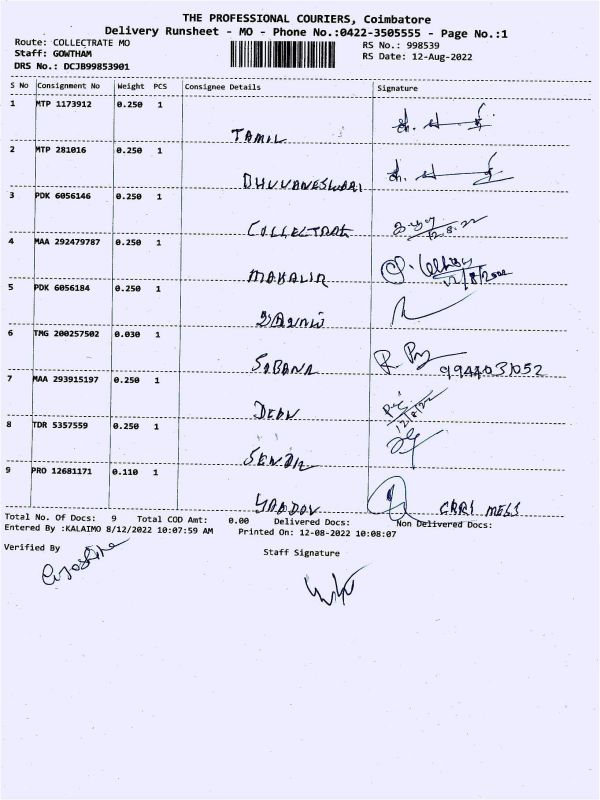 THE PROFESSIONAL COURIERS, Coimbatore
Delivery Runsheet - MO - Phone No.:0422-3505555 - Page No.:1
Route: COLLECTRATE MO
RS No.: 998539
Staff: GOWTHAM
RS Date: 12-Aug-2022
DRS No.: DCJB99853901
S No Consignment No Weight PCS Consignee Details Signature
1 MTP 1173912 0.250 1
TAMIL
2 MTP 281016 0.250 1
BHUVANESWARI
3 PDK 6056146 0.250 1
COLLECTRATE 12.8.22
4 MAA 292479787 0.250 1
MAHALIR 12/8/2022
5 PDK 6056184 0.250 1
6 TMG 200257502 0.030 1
SOBANA 9944031052
7 MAA 293915197 0.250 1
DEAN 12/8/22
8 TDR 5357559 0.250 1
SENTIL
9 PRO 12681171 0.110 1
YADDOV MESS
Total No. Of Docs: 9 Total COD Amt: 0.00 Delivered Docs: Non Delivered Docs:
Entered By :KALAIMO 8/12/2022 10:07:59 AM Printed On: 12-08-2022 10:08:07
Verified By
Staff Signature